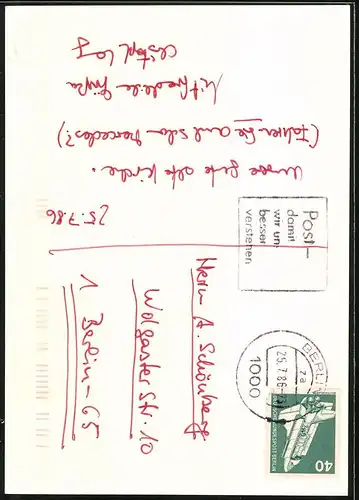 25.7.86
Unsere gute alte Kirche.
(Fahren Sie auch schon Mercedes?)
Mit freundlichen Grüßen
Post-
damit
wir uns
besser
verstehen
BERLIN
za
25.7.86
1000
DEUTSCHE BUNDESPOST BERLIN
40
Herrn A. Schönberg
Wolgaster Str. 10
1 Berlin-65